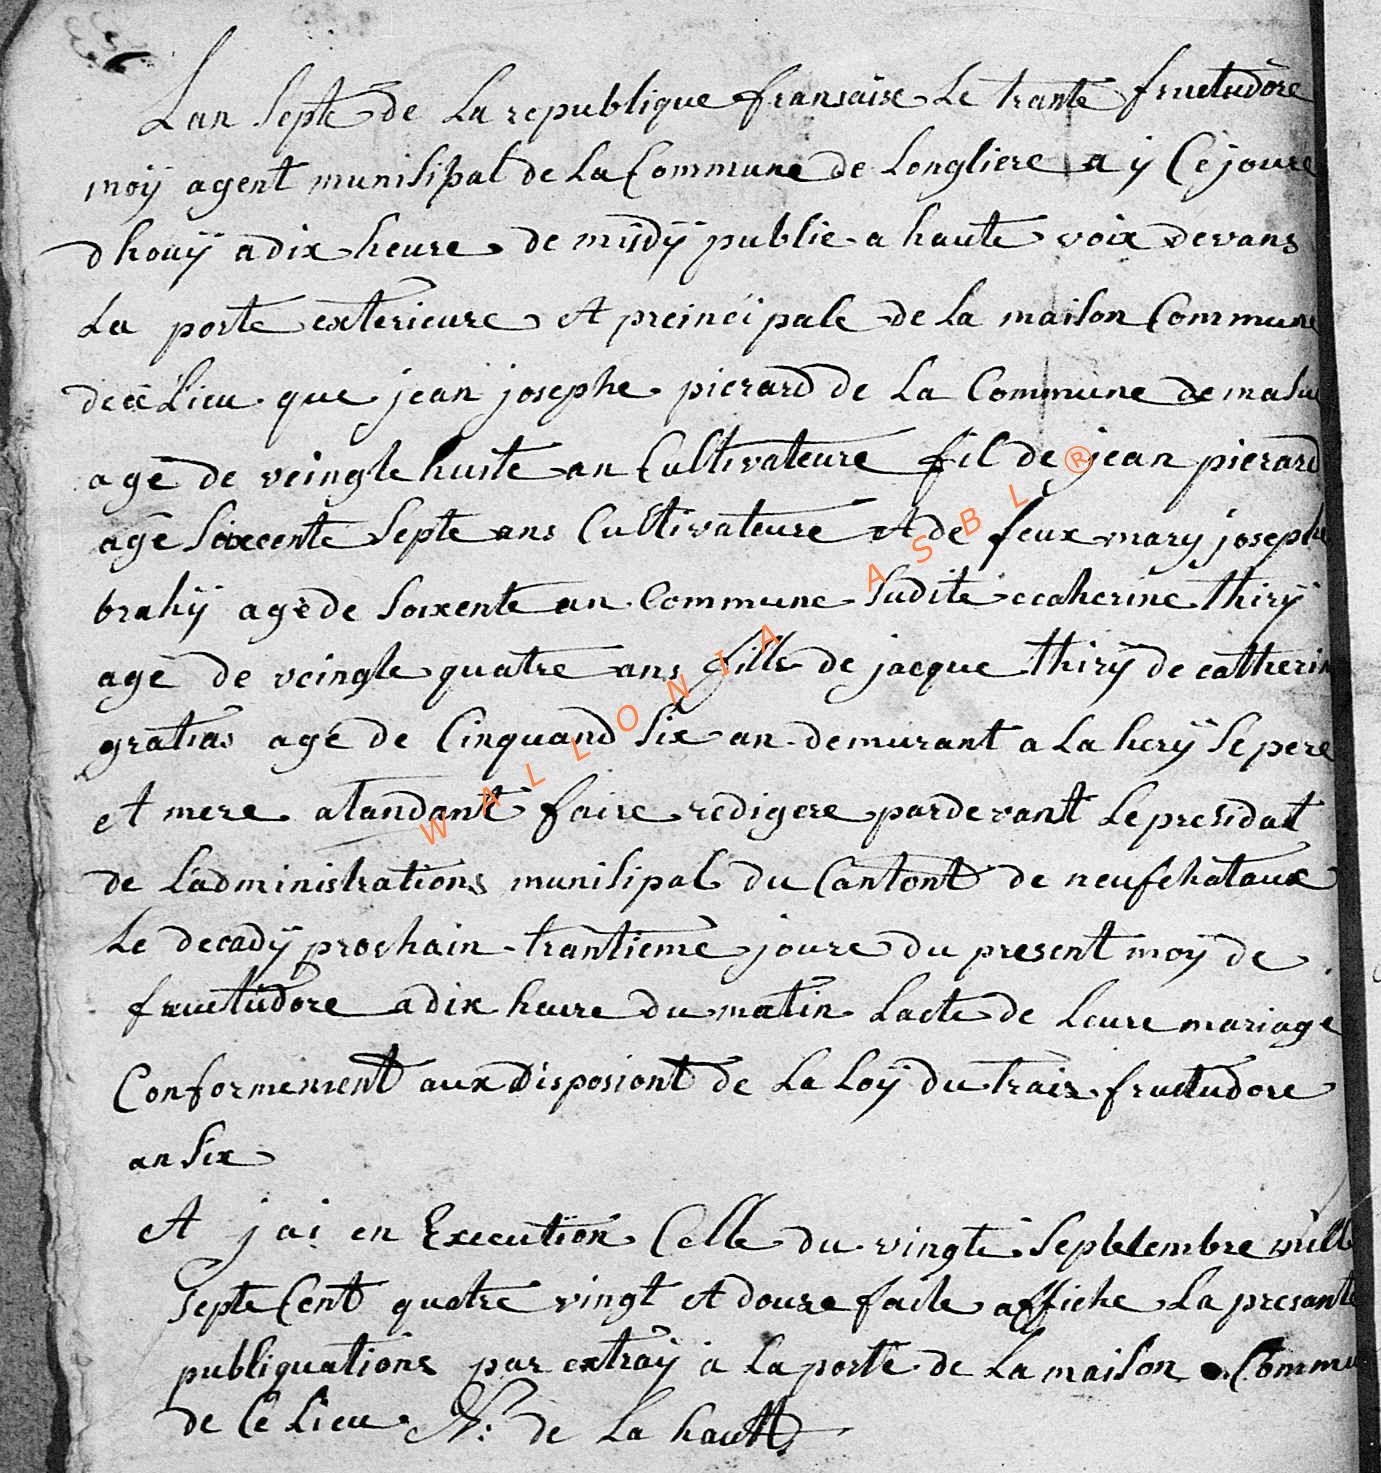 Lan septe de la republique fransaise le trante fructudore
moÿ agent munisipal de la Commune de Longliere a ÿ Ce joure
dhouÿ a dix heure de misdÿ publie a haute voix devans
La porte exterieure et preincipale de la maison Commune
de ce Lieu que jean josephe pierard de La Commune de
age de veingte huite an Cultivateure fil de jean pierard
age soixcente septe ans Cultivateure et de feux mary josephe
brahÿ age de soixente an Commune sudite ccaherine thirÿ
age de veingte quatre ans fille de jacque thirÿ de catherin
gratias age de Cinquand six an demurant a La herÿ se pere
et mere atandant faire redigere pardevant Le presidat
de Ladministrations munisipal du Cantont de neufchataux
Le decadÿ prochain trantieme joure du present moÿ de
fructudore a dix heure du matin Lacte de Leure mariage
Conformement aux disposiont de La Loÿ du traix fructudore
an six
et jai en Execution Celle du vingte Septembre mille
septe Cent quatre vingt et douze faite affiche La presante
publiquations par extraÿ a La porte de La maison Commu
de Ce Lieu N: de La hautt
WALLONIA ASBL ®